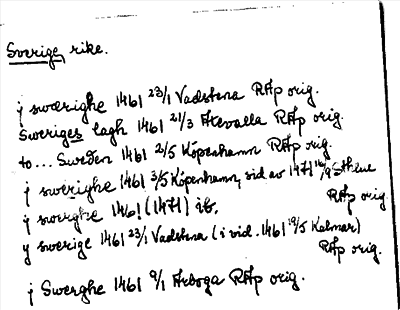 Sverige, rike.
j swærighe 1461 23/1 Vadstena RAp orig.
Sweriges lagh 1461 21/3 Axevalla RAp orig.
to... Sweden 1461 2/5 Köpenhamn RAp orig.
j swerighe 1461 3/5 Köpenhamn, vid av 1471 16/9 Sthlm
RAp orig
j swerghe 1461 (1471) ib.
y swerige 1461 23/1 Vadstena (i vid. 1461 19/5 Kalmar)
RAp orig.
j Swerghe 1461 9/1 Arboga RAp orig.